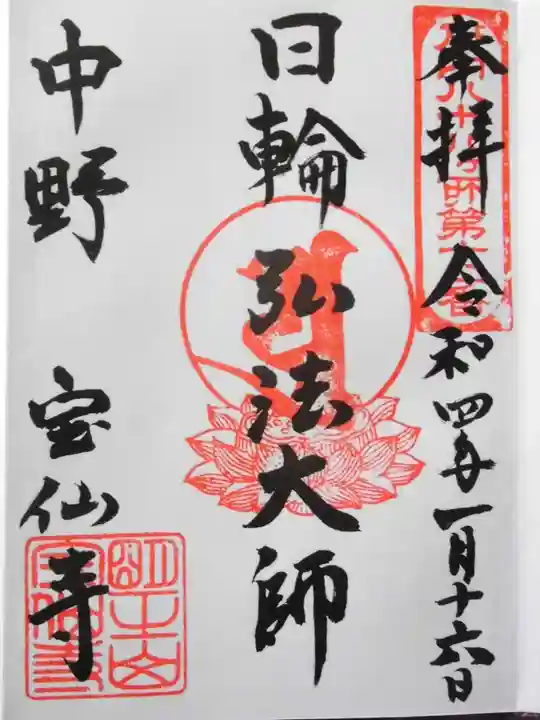 奉拝 令和四年一月十六日
日輪 弘法大師
中野 宝仙寺